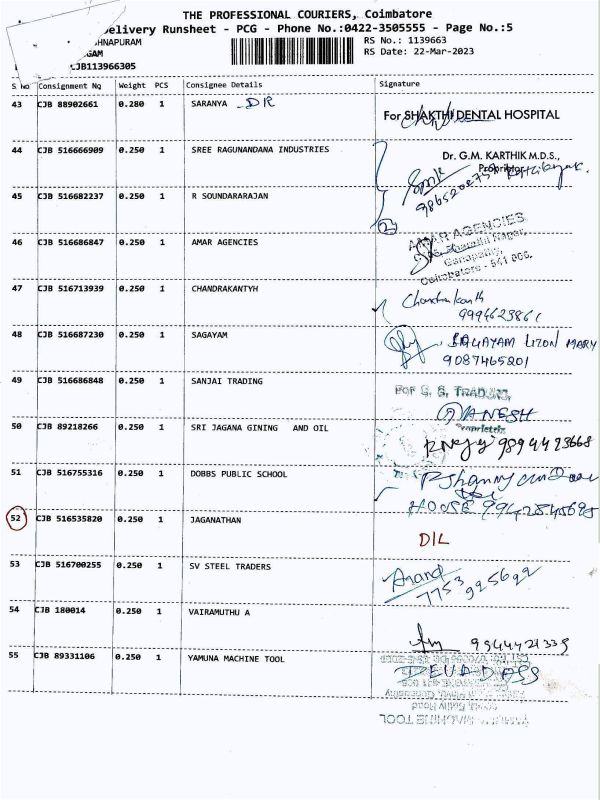 THE PROFESSIONAL COURIERS, Coimbatore
Delivery Runsheet - PCG - Phone No.:0422-3505555 - Page No.:5
HNAPURAM
RS No.: 1139663
GAM
RS Date: 22-Mar-2023
CJB113966305
S No Consignment No Weight PCS Consignee Details Signature
43 CJB 88902661 0.280 1 SARANYA DR
For SHAKTHI DENTAL HOSPITAL
44 CJB 516666909 0.250 1 SREE RAGUNANDANA INDUSTRIES
Dr. G.M. KARTHIK M.D.S.,
Proprietor
45 CJB 516682237 0.250 1 R SOUNDARARAJAN
2
46 CJB 516686847 0.250 1 AMAR AGENCIES
AMAR AGENCIES
Nagar,
Ganapathy,
Coimbatore - 641 006.
47 CJB 516713939 0.250 1 CHANDRAKANTYH
Chandrakanth
9994623861
48 CJB 516687230 0.250 1 SAGAYAM
SAGAYAM LIZON MARY
9087465201
49 CJB 516686848 0.250 1 SANJAI TRADING
For G. S. TRADING,
VANESH
Proprietrix
50 CJB 89218266 0.250 1 SRI JAGANA GINING AND OIL
9894423668
51 CJB 516755316 0.250 1 DOBBS PUBLIC SCHOOL
HOUSE 9942845695
52 CJB 516535820 0.250 1 JAGANATHAN
DIL
53 CJB 516700255 0.250 1 SV STEEL TRADERS
Anand
7753925692
54 CJB 180014 0.250 1 VAIRAMUTHU A
9944421339
55 CJB 89331106 0.250 1 YAMUNA MACHINE TOOL
DEVADOSS
YAMUNA MACHINE TOOL